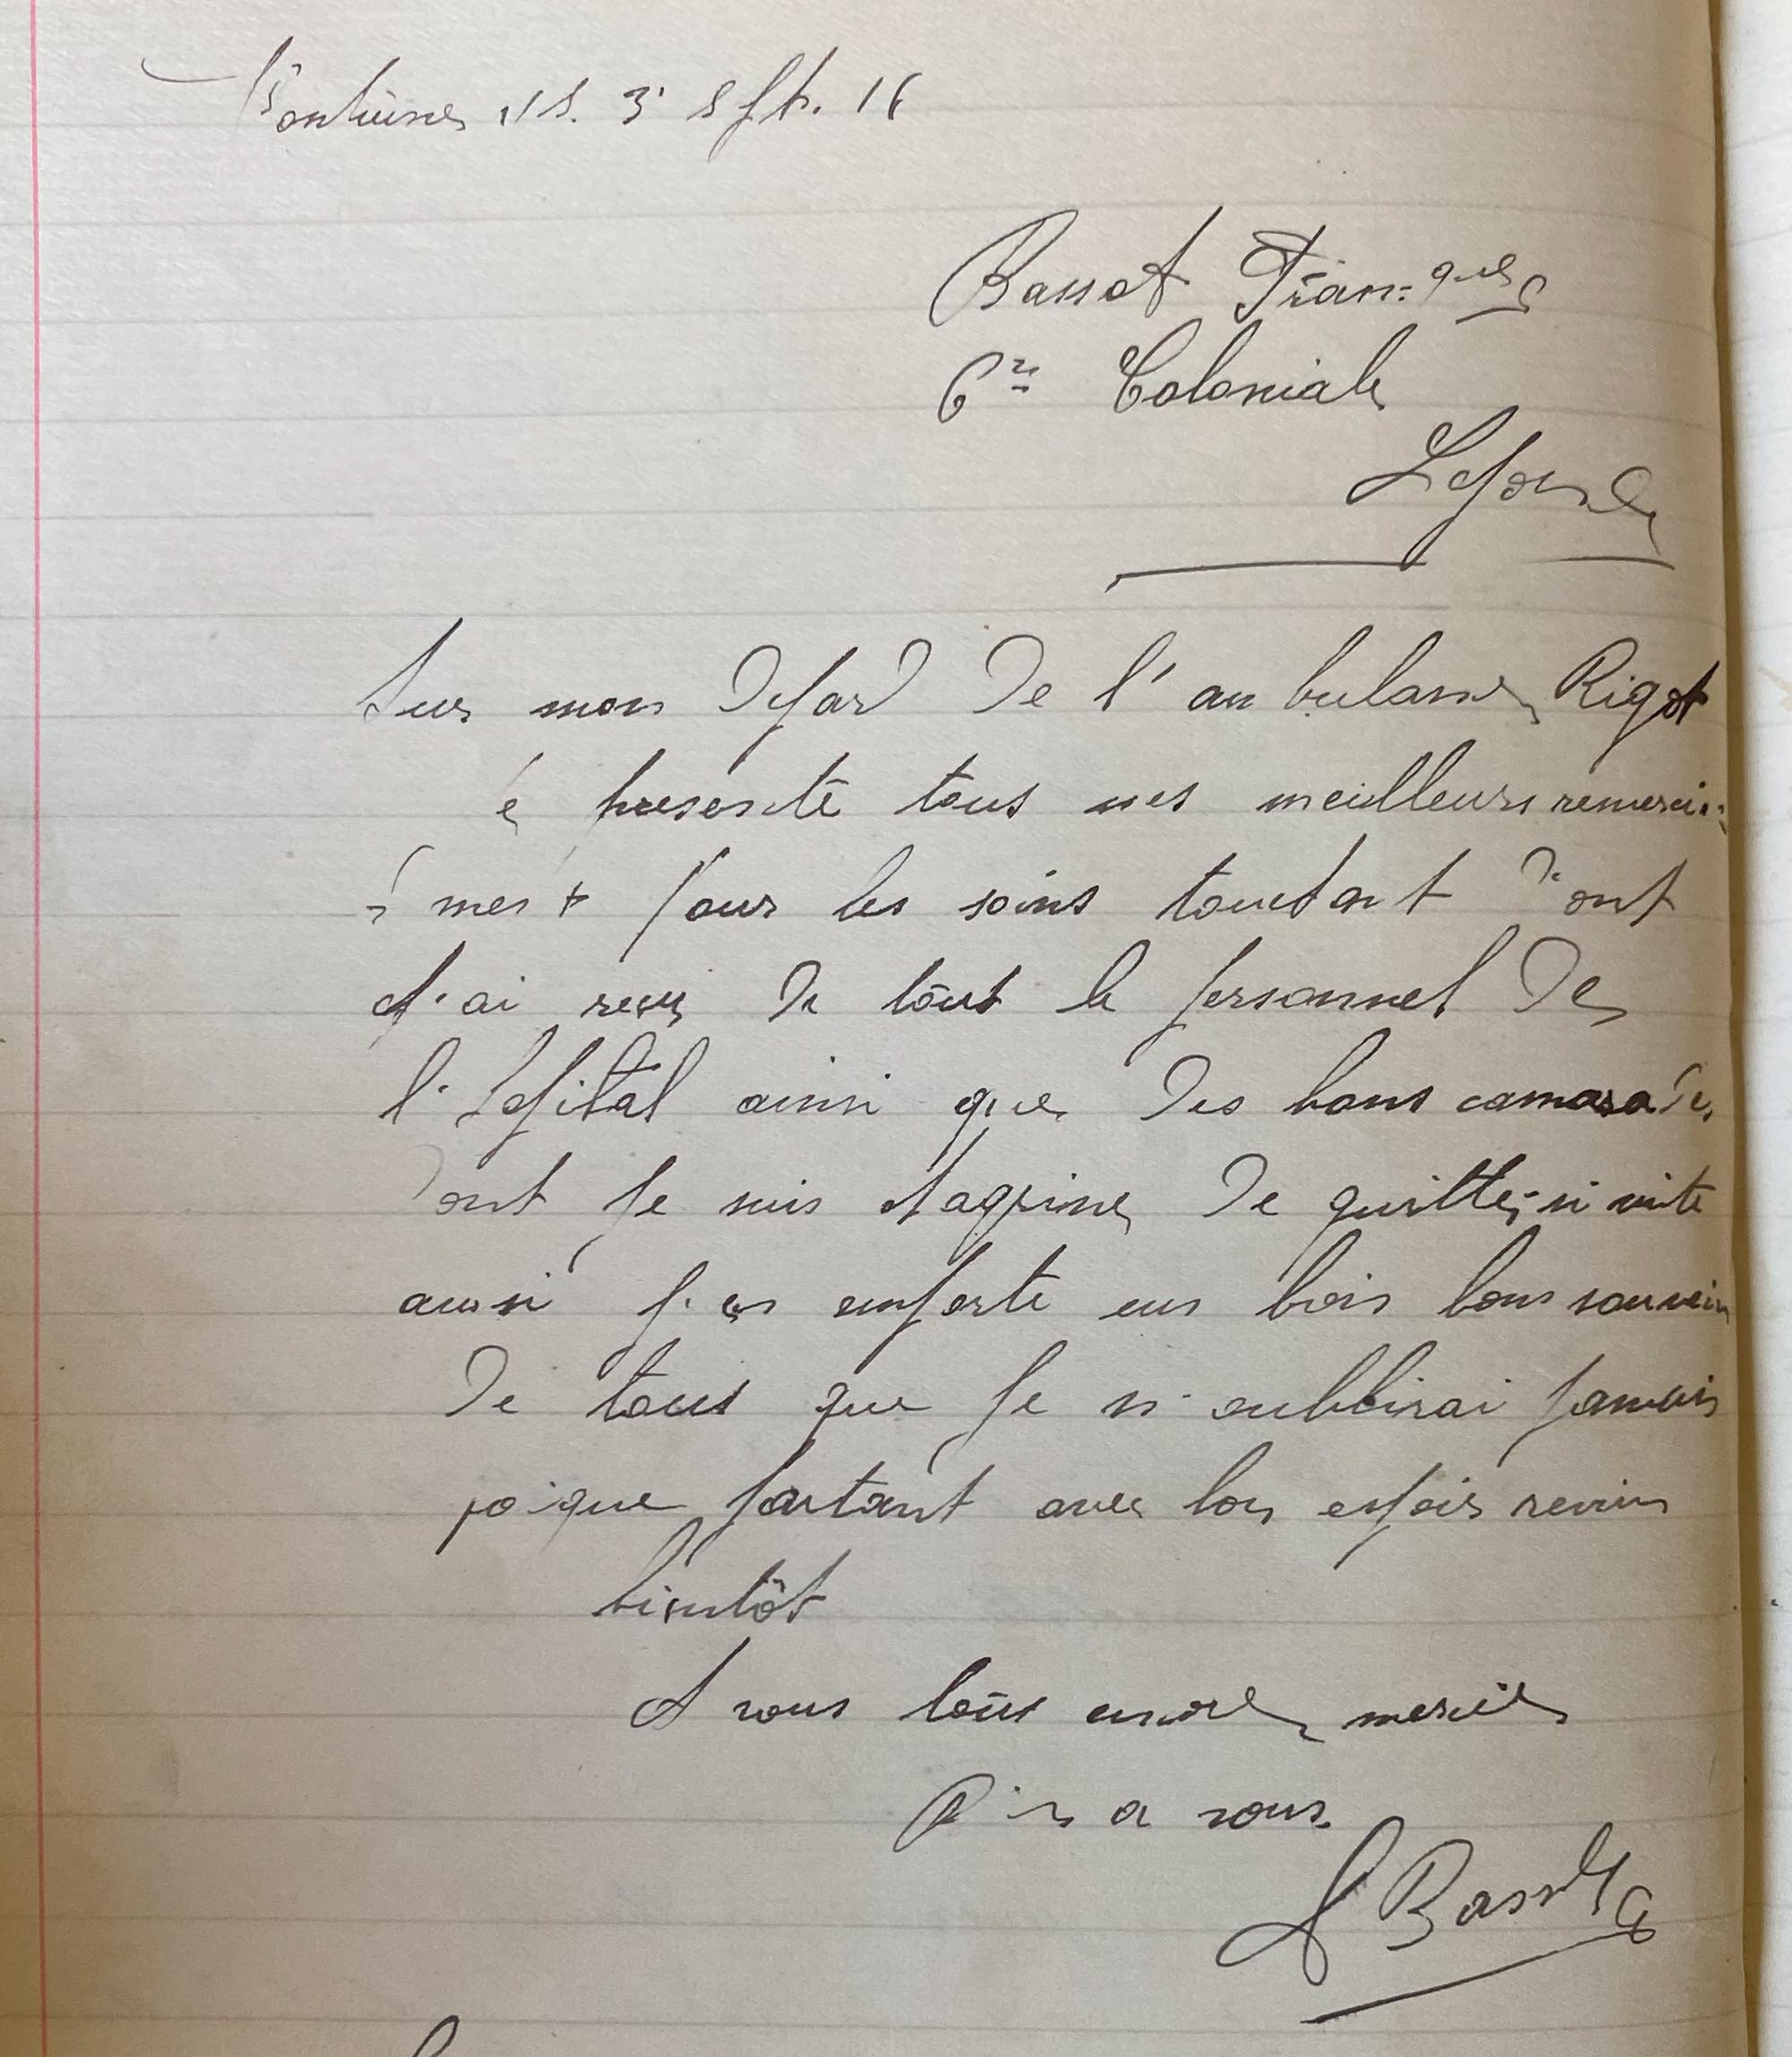 Fontaines s/s. 3 Sept. 16
Bassot Fran=
6e Coloniale
Sur mon depard de l'anbulance Rigot
é presenté tous mes meilleurs remerci=
=ment pour les soins touchant dont
J'ai reçu de tout le personnel de
l'Hopital ainsi que des bons camarade
dont Je suis chagriné de quitter si vite
aussi J'en emporte un bien bons souvenir
de tous que Je n'oublirai Jamais
partant avec bon espoir revenir
bientôt
A vous tous encore mercie
a vous.
Bassot